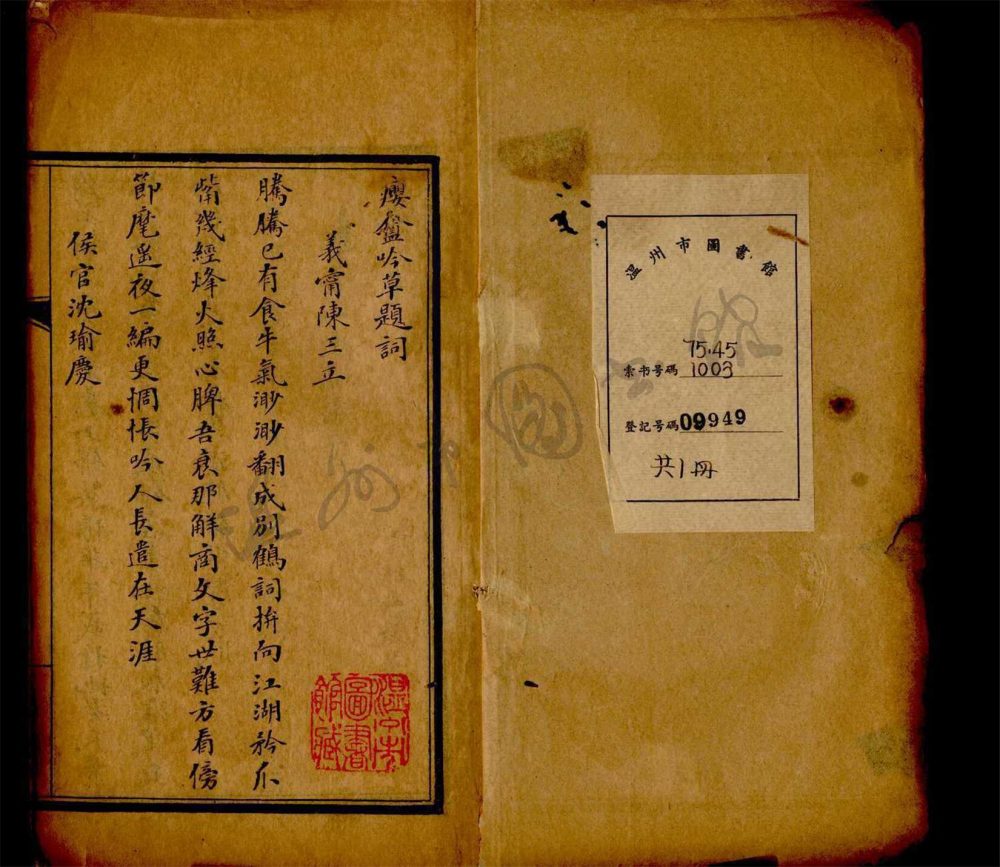 溫州市圖書館
索书号碼 75.45
1003
登記号碼 09949
共1冊
癭盦吟草題詞
義甯陳三立
騰騰已有食牛氣渺渺翻成別鶴詞拚向江湖矜爪
觜幾經烽火照心脾吾衰那解商文字世難方看傍
節麾遥夜一編更惆悵吟人長遣在天涯
侯官沈瑜慶
溫州市
圖書
館藏
溫州市圖書館